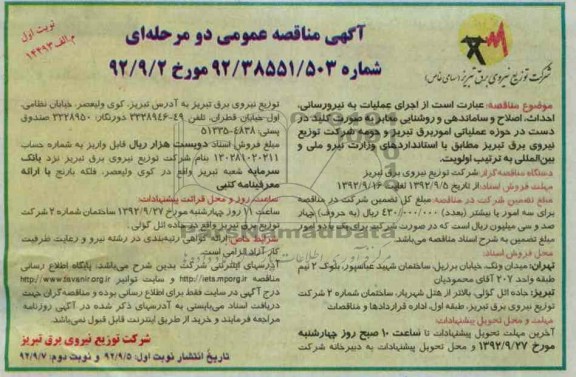 نوبت اول
م.الف ۱۲۴۹۳
آگهی مناقصه عمومی دو مرحله‌ای
شماره ۹۲/۳۸۵۵۱/۵۰۳ مورخ ۹۲/۹/۲
شرکت توزیع نیروی برق تبریز (سهامی خاص)
موضوع مناقصه: عبارت است از اجرای عملیات به نیرورسانی،
احداث، اصلاح و ساماندهی و روشنایی معابر به صورت کلید در
دست در حوزه عملیاتی امور برق تبریز و حومه شرکت توزیع
نیروی برق تبریز مطابق با استانداردهای وزارت نیرو ملی و
بین‌المللی به ترتیب اولویت.
دستگاه مناقصه گزار: شرکت توزیع نیروی برق تبریز
مهلت فروش اسناد: از تاریخ ۱۳۹۲/۹/۵ لغایت ۱۳۹۲/۹/۱۶
مبلغ تضمین شرکت در مناقصه: مبلغ کل تضمین شرکت در مناقصه
برای سه امور یا بیشتر (بعدد) ۴۳۰/۰۰۰/۰۰۰ ریال (به حروف) چهار
صد و سی میلیون ریال است که در صورت شرکت برای یک یا دو امور
مبلغ تضمین به شرح اسناد مناقصه می‌باشد.
محل فروش اسناد:
تهران: میدان ونک، خیابان برزیل، ساختمان شهید عباسپور، بلوک ۲ نیم
طبقه واحد ۲۰۷ آقای محمودیان
تبریز: جاده ائل گولی، بالاتر از هتل شهریار، ساختمان شماره ۲ شرکت
توزیع نیروی برق تبریز، طبقه اول، اداره قراردادها و مناقصات
مهلت و محل تحویل پیشنهادات:
آخرین مهلت تحویل پیشنهادات تا ساعت ۱۰ صبح روز چهارشنبه
مورخ ۱۳۹۲/۹/۲۷ و محل تحویل پیشنهادات به دبیرخانه شرکت
توزیع نیروی برق تبریز به آدرس تبریز، کوی ولیعصر، خیابان نظامی،
اول خیابان قطران، تلفن ۴۹-۳۳۲۸۹۴۶ دورنگار: ۳۳۲۸۹۵۰ صندوق
پستی: ۴۸۳۸-۵۱۳۳۵
مبلغ فروش اسناد دویست هزار ریال قابل واریز به شماره حساب
۱۳۰۲۸۱۰۲۰۲۱۱ بنام شرکت توزیع نیروی برق تبریز نزد بانک
سرمایه شعبه تبریز واقع در کوی ولیعصر، فلکه بارنج با ارائه
معرفینامه کتبی
ساعت، روز و محل قرائت پیشنهادات:
ساعت ۱۱ روز چهارشنبه مورخ ۱۳۹۲/۹/۲۷ ساختمان شماره ۲ شرکت
توزیع نیروی برق تبریز واقع در جاده ائل گولی
شرایط خاص: ارائه گواهی رتبه‌بندی در رشته نیرو و رعایت ظرفیت
کار آزاد الزامی است.
آدرسهای اینترنتی شرکت بدین شرح می‌باشد: پایگاه اطلاع رسانی
مناقصه http://iets.mporg.ir و سایت توانیر http://www.tavanir.org.ir
درج آگهی در سایت فقط برای اطلاع رسانی بوده و مناقصه‌گران جهت
دریافت اسناد می‌بایستی به آدرسهای ذکر شده در آگهی روزنامه
مراجعه فرمایند و خرید از طریق اینترنت قابل قبول نمی‌باشد.
شرکت توزیع نیروی برق تبریز
تاریخ انتشار نوبت اول: ۹۲/۹/۵ و نوبت دوم: ۹۲/۹/۷